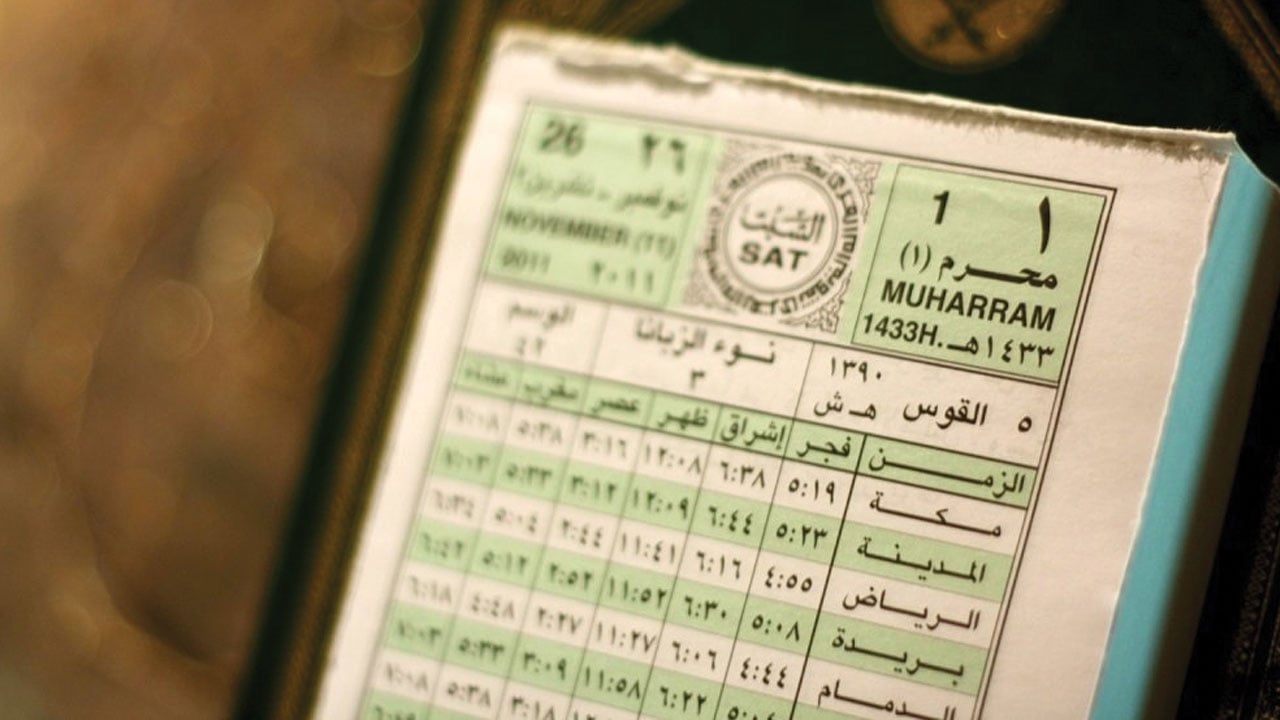 26 ٢٦
نوفمبر - تشرين٢
NOVEMBER (١١)
2011 ٢٠١١
السَّبْت
SAT
1 ١
محرم (١)
MUHARRAM
1433H. ١٤٣٣هـ
١٣٩٠
٥ القوس هـ ش
نوء الزبانا
٣
الوسم
٤٢
الزمن فجر إشراق ظهر عصر مغرب عشاء
مكة ٥:١٩ ٦:٣٨ ١٢:٠٨ ٣:١٦ ٥:٣٨ ٧:٠٨
المدينة ٥:٢٣ ٦:٤٤ ١٢:٠٩ ٣:١٢ ٥:٣٣ ٧:٠٣
الرياض ٤:٥٥ ٦:١٦ ١١:٤١ ٢:٤٤ ٥:٠٤ ٦:٣٤
بريدة ٥:٠٨ ٦:٣٠ ١١:٥٢ ٢:٥٢ ٥:١٢ ٦:٤٢
الدمام ٤:٤٤ ٦:٠٦ ١١:٢٧ ٢:٢٧ ٤:٤٨ ٦:١٨
٦:٢٢ ١١:٥٨ ٣:٠٩ ٥:٣٣ ٧:٠٣
٣:١٨ ٥:٣٨ ٧:٠٨